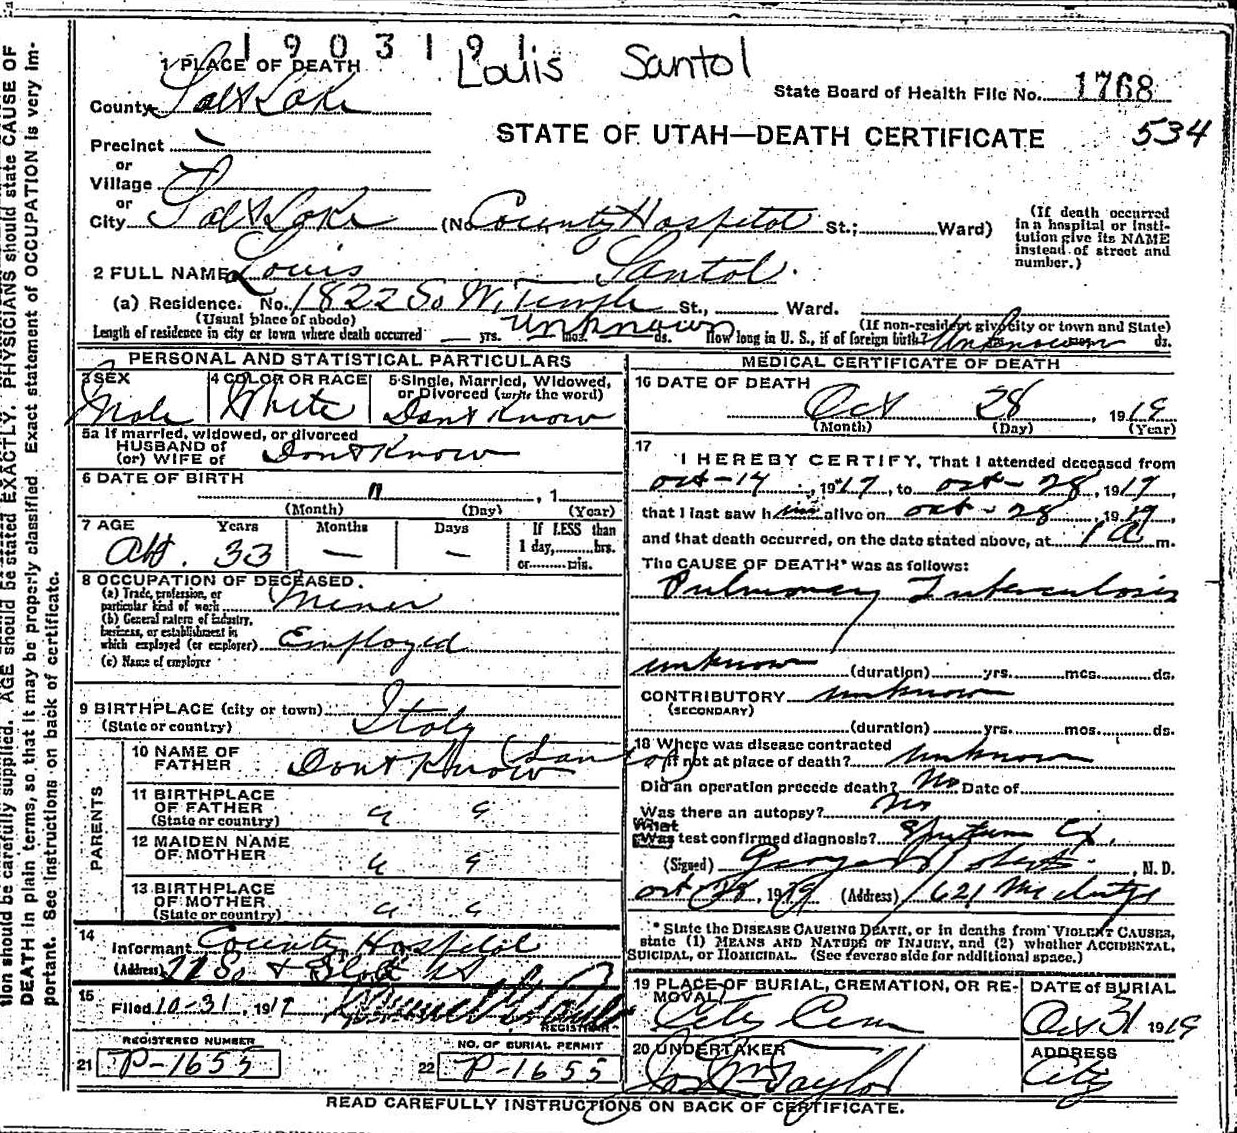 1903191
Louis Santol
1 PLACE OF DEATH
State Board of Health File No. 1768
County Salt Lake
STATE OF UTAH—DEATH CERTIFICATE 534
Precinct
or
Village
or
City Salt Lake (No County Hospital St.; Ward)
(If death occurred in a hospital or institution give its NAME instead of street and number.)
2 FULL NAME Louis Santol.
(a) Residence. No. 1822 So W. Temple St., Ward.
(Usual place of abode) (If non-resident give city or town and State)
Length of residence in city or town where death occurred yrs. unknown mos. ds. How long in U. S., if of foreign birth? Unknown ds.
PERSONAL AND STATISTICAL PARTICULARS
3 SEX Male
4 COLOR OR RACE White
5 Single, Married, Widowed, or Divorced (write the word) Dont Know
5a If married, widowed, or divorced
HUSBAND of
(or) WIFE of Dont Know
6 DATE OF BIRTH " , 1
(Month) (Day) (Year)
7 AGE Years Months Days If LESS than
Abt. 33 — — 1 day, hrs.
or min.
8 OCCUPATION OF DECEASED.
(a) Trade, profession, or particular kind of work Miner
(b) General nature of industry, business, or establishment in which employed (or employer) Employed
(c) Name of employer
9 BIRTHPLACE (city or town) Italy
(State or country)
PARENTS
10 NAME OF FATHER Dont Know (Santol)
11 BIRTHPLACE OF FATHER (State or country) " "
12 MAIDEN NAME OF MOTHER " "
13 BIRTHPLACE OF MOTHER (State or country) " "
14
Informant County Hospital
(Address) 21 So & State St
15
Filed 10-31, 1919
REGISTRAR
REGISTERED NUMBER
21 P-1655
NO. OF BURIAL PERMIT
22 P-1655
MEDICAL CERTIFICATE OF DEATH
16 DATE OF DEATH
Oct 28, 1919
(Month) (Day) (Year)
17
I HEREBY CERTIFY, That I attended deceased from
oct-14, 1919, to oct-28, 1919,
that I last saw him alive on oct-28, 1919,
and that death occurred, on the date stated above, at 1 a m.
The CAUSE OF DEATH* was as follows:
Pulmonary Tuberculosis
unknow (duration) yrs. mos. ds.
CONTRIBUTORY unknow
(SECONDARY)
(duration) yrs. mos. ds.
18 Where was disease contracted
if not at place of death? unknow
Did an operation precede death? No Date of
Was there an autopsy? No
What
Was test confirmed diagnosis? Sputum Ex.
(Signed) George , M.D.
oct 28, 1919 (Address) 621 McIntyre
* State the DISEASE CAUSING DEATH, or in deaths from VIOLENT CAUSES,
state (1) MEANS AND NATURE OF INJURY, and (2) whether ACCIDENTAL,
SUICIDAL, or HOMICIDAL. (See reverse side for additional space.)
19 PLACE OF BURIAL, CREMATION, OR REMOVAL City Cem
DATE of BURIAL Oct 31 1919
20 UNDERTAKER Jos Wm Taylor
ADDRESS City
READ CAREFULLY INSTRUCTIONS ON BACK OF CERTIFICATE.
tion should be carefully supplied. AGE should be stated EXACTLY. PHYSICIANS should state CAUSE OF
DEATH in plain terms, so that it may be properly classified. Exact statement of OCCUPATION is very im-
portant. See instructions on back of certificate.